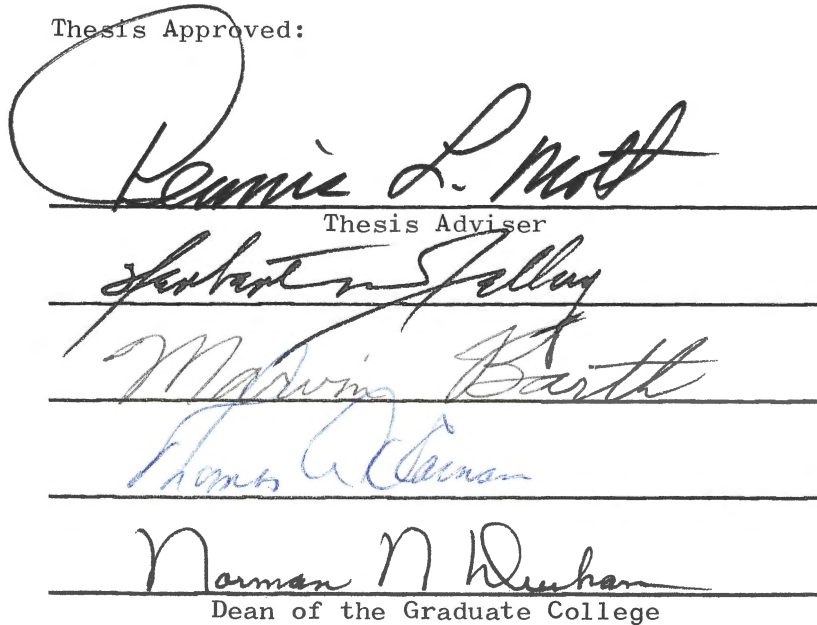 Thesis Approved:
Dennis L. Mott
Thesis Adviser
Herbert m Jelley
Marvin Barth
Thomas
Norman N Durham
Dean of the Graduate College